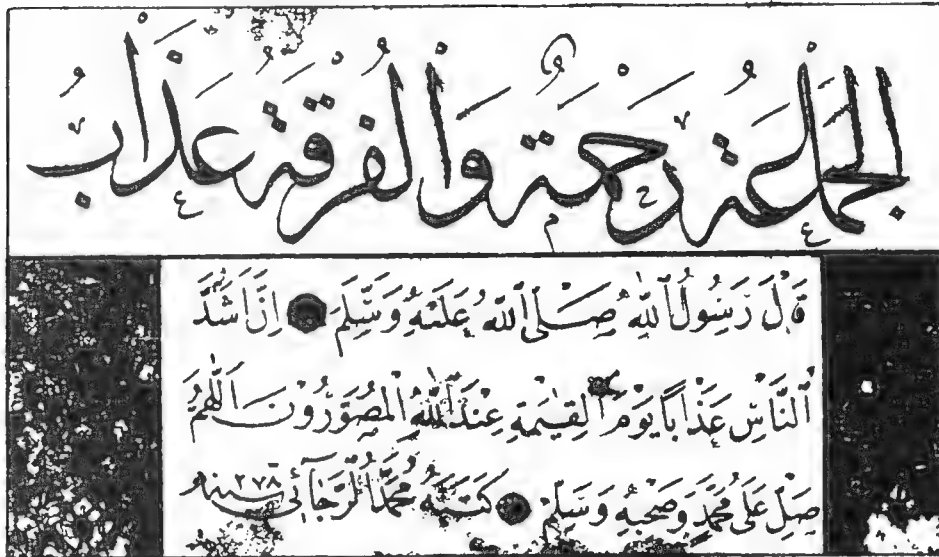 الجماعة رحمة والفرقة عذاب
قال رسول الله صلى الله عليه وسلم ان اشد
الناس عذابا يوم القيمة عند الله المصورون اللهم
صل على محمد وصحبه وسلم كتبه محمد سنه